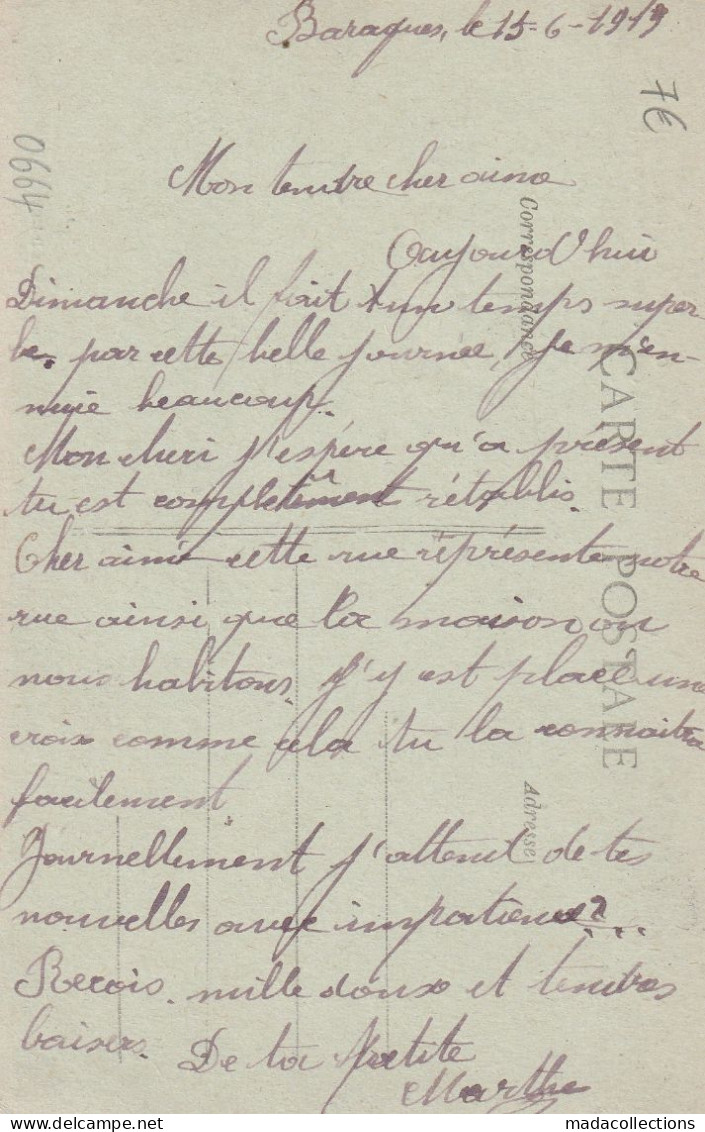 Baraques, le 15-6-1919
7€
0664
Mon tendre cher aimé
Aujourd'hui
Dimanche il fait un temps super
be. par cette belle journée, je m'en-
nuie beaucoup.
Mon cheri j'espère qu'a présent
tu est complètement rétablis.
Cher aimé cette rue réprésente notre
rue ainsi que la maison ou
nous habitons. j'y est placé une
croix comme cela tu la connaitra
facilement.
Journellement j'attend de tes
nouvelles avec impatience?...
Recois mille doux et tendres
baisers.
De ta Petite
Marthe
Correspondance
CARTE POSTALE
Adresse
madacollections.com